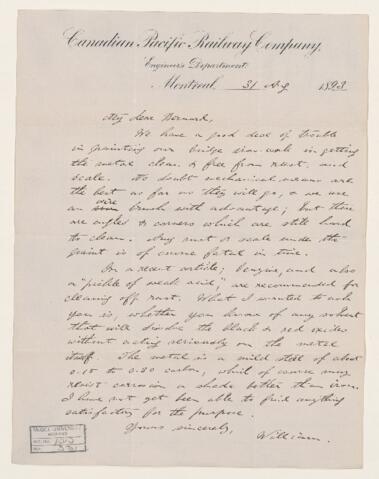 Canadian Pacific Railway Company,
Engineer's Department
Montreal, 31 Aug 1893
My dear Bernard,
We have a good deal of trouble
in painting our bridge iron-work in getting
the metal clean & free from rust and
scale. No doubt mechanical means are
the best as far as they will go, & we use
an wire brush with advantage; but there
are angles & corners which are still hard
to clean. Any rust or scale under the
paint is of course fatal in time.
In a recent article, benzine, and also
a "pickle of weak acid," are recommended for
cleaning off rust. What I wanted to ask
you is, whether you know of any solvent
that will dissolve the black & red oxides
without acting seriously on the metal
itself. The metal is a mild steel of about
0.10 to 0.20 carbon, which of course may
resist corrosion a shade better than iron.
I have not yet been able to find anything
satisfactory for the purpose.
Yours sincerely,
William.
McGILL UNIVERSITY
ARCHIVES